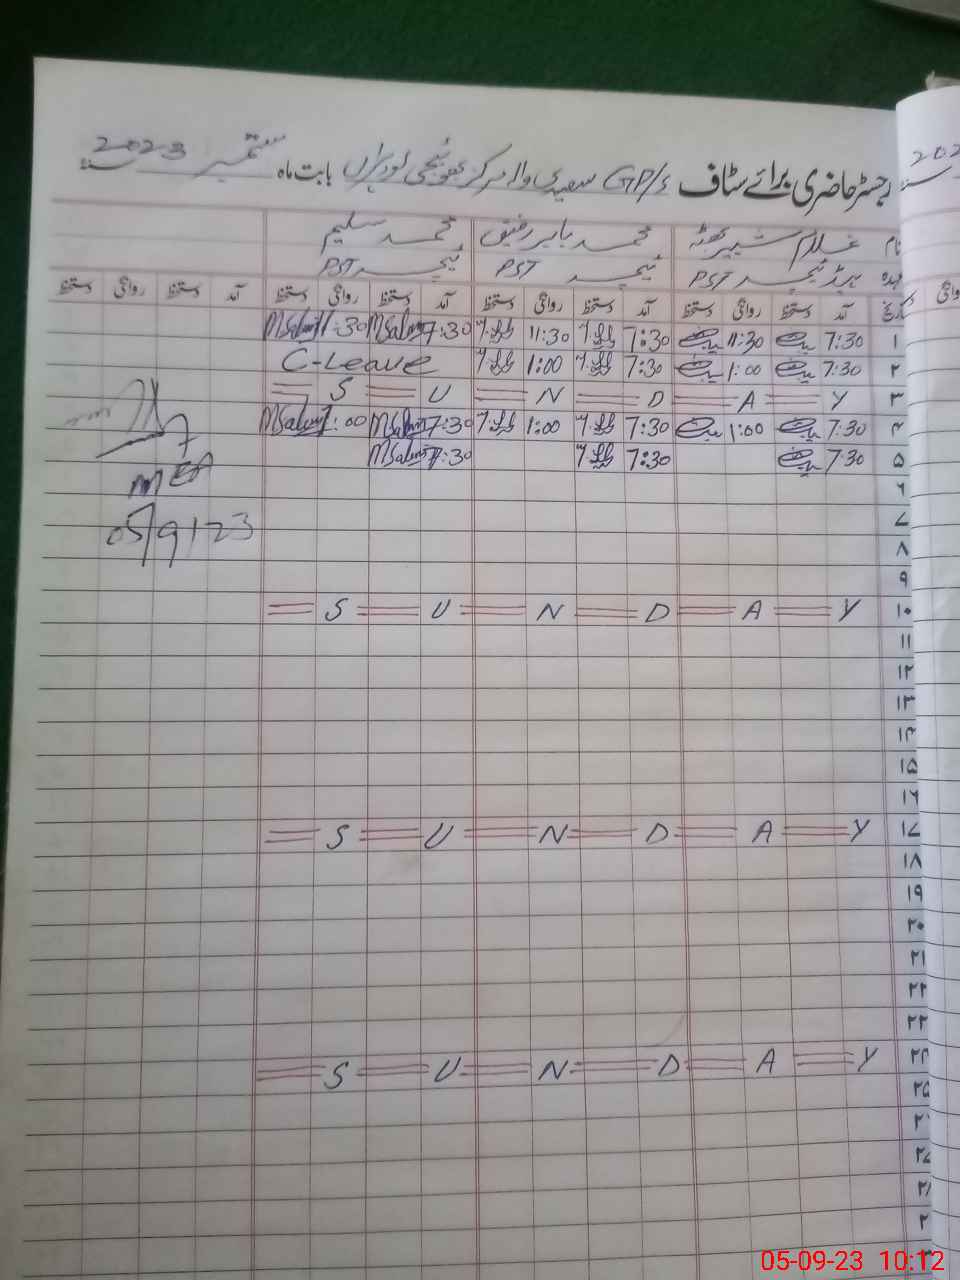 رجسٹر حاضری برائے سٹاف GP/S سعیدی والہ مرکز بابت ماہ ستمبر 2023
نام غلام شبیر بھٹہ محمد بابر رفیق محمد سلیم
عہدہ ہیڈ ٹیچر PST ٹیچر PST ٹیچر PST
تاریخ آمد دستخط روانگی دستخط آمد دستخط روانگی دستخط آمد دستخط روانگی دستخط آمد دستخط روانگی دستخط
۱ 7:30 11:30 7:30 11:30 7:30 MSaleem 11:30 MSaleem
۲ 7:30 1:00 7:30 1:00 C-Leave
۳ S U N D A Y
۴ 7:30 1:00 7:30 1:00 7:30 MSaleem 1:00 MSaleem
۵ 7:30 7:30 7:30 MSaleem
MEA
۶
۷
05/9/23
۸
۹
۱۰ S U N D A Y
۱۱
۱۲
۱۳
۱۴
۱۵
۱۶
۱۷ S U N D A Y
۱۸
۱۹
۲۰
۲۱
۲۲
۲۳
۲۴ S U N D A Y
۲۵
05-09-23 10:12